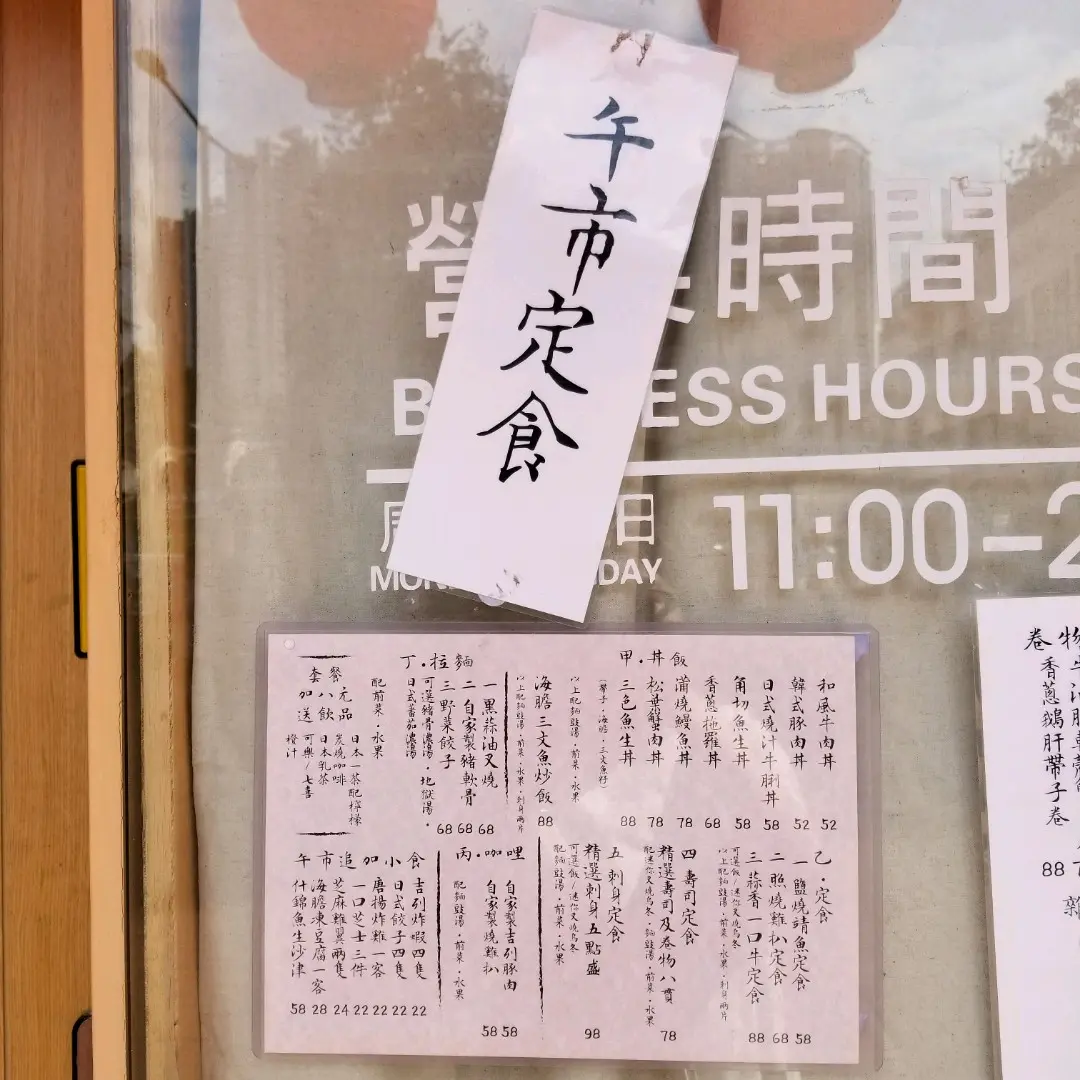 午市定食
時間
ESS HOURS
日
11:00-2
DAY
甲·丼飯
和風牛肉丼 52
韓式豚肉丼 52
日式燒汁牛脷丼 58
角切魚生丼 58
香蔥拖羅丼 68
蒲燒鰻魚丼 78
松葉蟹肉丼 78
三色魚生丼 88
(帶子·海膽·三文魚籽)
以上配麵豉湯·前菜·水果
海膽三文魚炒飯 88
以上配麵豉湯·前菜·水果·刺身兩片
丁·拉麵
一黑蒜油叉燒 68
二自家製豬軟骨 68
三野菜餃子 68
可選豬骨濃湯·地獄湯·
日式蕃茄濃湯
配前菜·水果
套餐
加八元
送飲品
日本一茶配檸檬
炭燒咖啡
日本乳茶
可樂/七喜
橙汁
乙·定食
一鹽燒請魚定食 58
二照燒雞扒定食 68
三蒜香一口牛定食 88
可選飯/迷你叉燒烏冬
以上配麵豉湯·前菜·水果·刺身兩片
四壽司定食
精選壽司及卷物八貫 78
配迷你叉燒烏冬·麵豉湯·前菜·水果
五刺身定食
精選刺身五點盛 98
可選飯/迷你叉燒烏冬
配麵豉湯·前菜·水果
丙·咖哩
自家製吉列豚肉 58
自家製燒雞扒 58
配麵豉湯·前菜·水果
午市追加小食
吉列炸蝦四隻 22
日式餃子四隻 22
唐揚炸雞一客 22
一口芝士三件 22
芝麻雞翼兩隻 24
海膽凍豆腐一客 28
什錦魚生沙津 58
卷物
香蔥鵝肝帶子卷 88